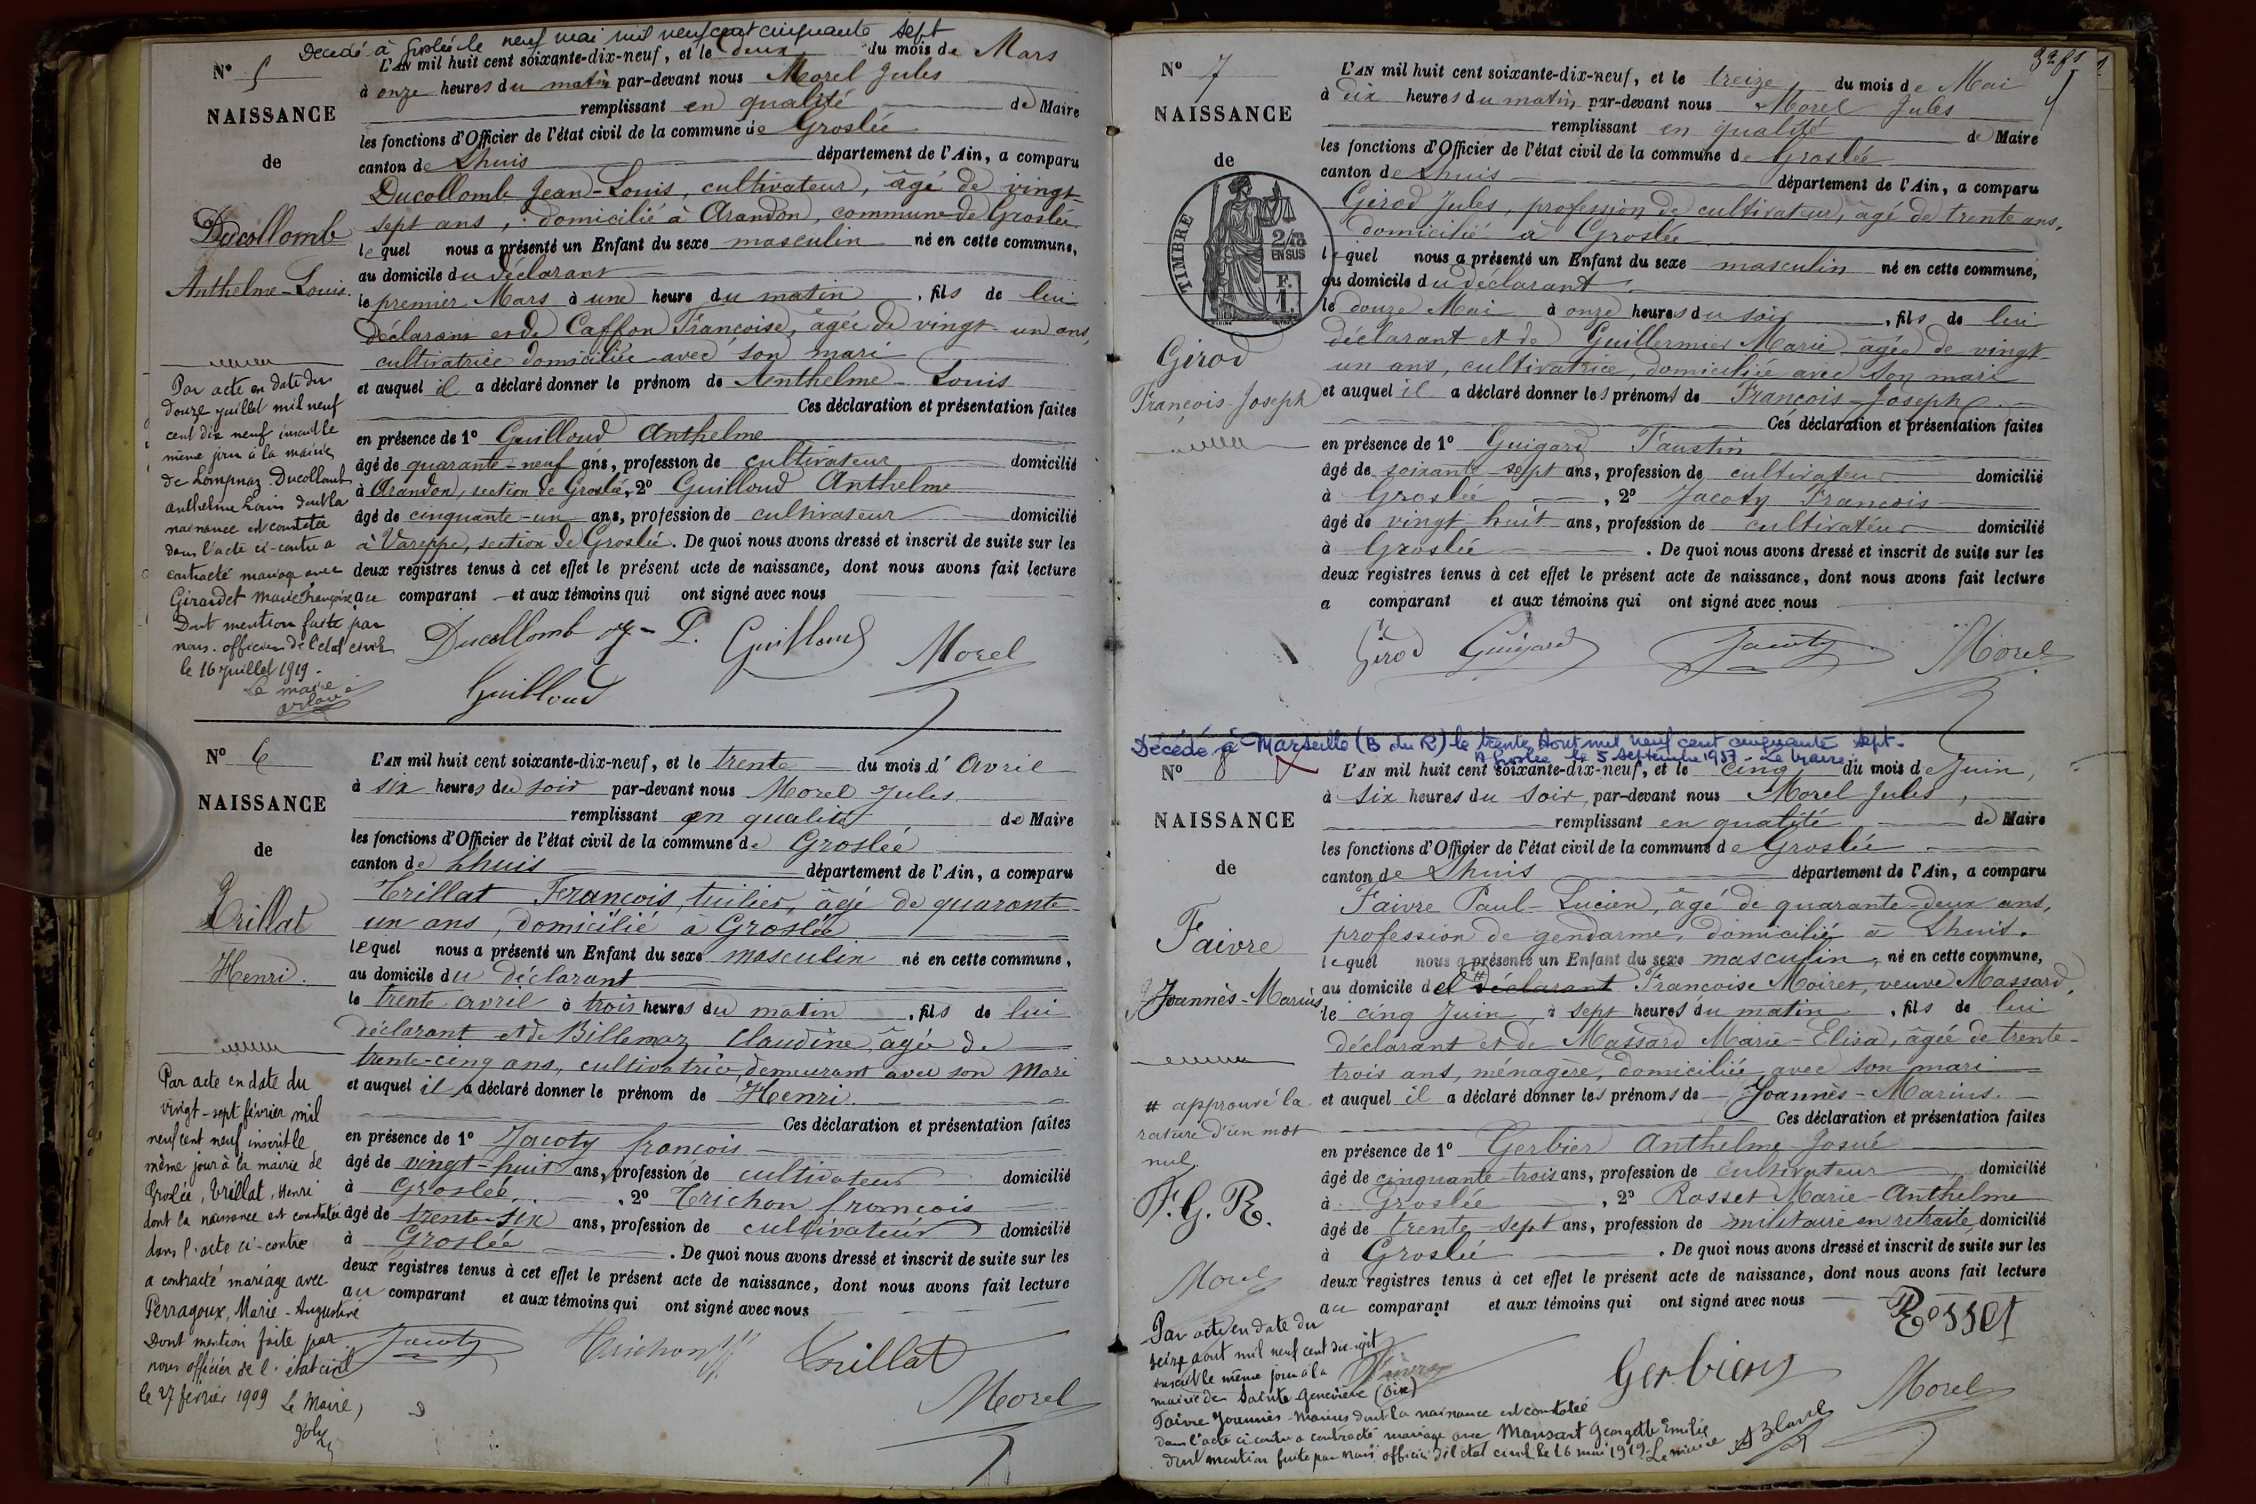 Décédé à Groslée le neuf mai mil neuf cent cinquante sept
N° 5
NAISSANCE
de
Ducollomb
Anthelme-Louis.
L'AN mil huit cent soixante-dix-neuf, et le deux du mois de Mars
à onze heures du matin par-devant nous Morel Jules
remplissant en qualité de Maire
les fonctions d'Officier de l'état civil de la commune de Groslée
canton de Lhuis département de l'Ain, a comparu
Ducollomb Jean-Louis, cultivateur, âgé de vingt-
sept ans, domicilié à Arandon, commune de Groslée
lequel nous a présenté un Enfant du sexe masculin né en cette commune,
au domicile du déclarant
le premier Mars à une heure du matin, fils de lui
déclarant et de Caffon Françoise, âgée de vingt-un ans,
cultivatrice domiciliée avec son mari
et auquel il a déclaré donner le prénom de Anthelme-Louis
Ces déclaration et présentation faites
en présence de 1° Guilloud Anthelme
âgé de quarante-neuf ans, profession de cultivateur domicilié
à Arandon, section de Groslée, 2° Guilloud Anthelme
âgé de cinquante-un ans, profession de cultivateur domicilié
à Vareppe, section de Groslée. De quoi nous avons dressé et inscrit de suite sur les
deux registres tenus à cet effet le présent acte de naissance, dont nous avons fait lecture
au comparant et aux témoins qui ont signé avec nous
Ducollomb J-L. Guilloud Morel
Guilloud
Par acte en date du
douze juillet mil neuf
cent dix neuf inscrit le
même jour à la mairie
de Lompnaz Ducollomb
anthelme Louis dont la
naissance est constatée
dans l'acte ci-contre a
contracté mariage avec
Girardet Marie Françoise
Dont mention faite par
nous officier de l'état civil
le 16 juillet 1919.
Le maire
N° 6
NAISSANCE
de
Trillat
Henri.
L'AN mil huit cent soixante-dix-neuf, et le trente du mois d'avril
à six heures du soir par-devant nous Morel Jules
remplissant en qualité de Maire
les fonctions d'Officier de l'état civil de la commune de Groslée
canton de Lhuis département de l'Ain, a comparu
Trillat François, tuilier, âgé de quarante-
un ans, domicilié à Groslée
lequel nous a présenté un Enfant du sexe masculin né en cette commune,
au domicile du déclarant
le trente avril à trois heures du matin, fils de lui
déclarant et de Billemaz Claudine, âgée de
trente-cinq ans, cultivatrice demeurant avec son Mari
et auquel il a déclaré donner le prénom de Henri.
Ces déclaration et présentation faites
en présence de 1° Jacoty françois
âgé de vingt-huit ans, profession de cultivateur domicilié
à Groslée, 2° Trichon françois
âgé de trente-six ans, profession de cultivateur domicilié
à Groslée. De quoi nous avons dressé et inscrit de suite sur les
deux registres tenus à cet effet le présent acte de naissance, dont nous avons fait lecture
au comparant et aux témoins qui ont signé avec nous
Jacoty Trichon Trillat
Morel
Par acte en date du
vingt-sept février mil
neuf cent neuf inscrit le
même jour à la mairie de
Groslée, Trillat, Henri
dont la naissance est constatée
dans l'acte ci-contre
a contracté mariage avec
Perragoux, Marie-Augustine
Dont mention faite par
nous officier de l'état civil
le 27 février 1909 Le Maire,
N° 7
NAISSANCE
de
TIMBRE
2/10
EN SUS
F.
1.
Girod
François-Joseph
L'AN mil huit cent soixante-dix-neuf, et le treize du mois de Mai
à dix heures du matin, par-devant nous Morel Jules
remplissant en qualité de Maire
les fonctions d'Officier de l'état civil de la commune de Groslée
canton de Lhuis département de l'Ain, a comparu
Girod Jules, profession de cultivateur, âgé de trente ans,
domicilié à Groslée
lequel nous a présenté un Enfant du sexe masculin né en cette commune,
au domicile du déclarant
le douze Mai à onze heures du soir, fils de lui
déclarant et de Guillermier Marie âgée de vingt-
un ans, cultivatrice, domiciliée avec son mari
et auquel il a déclaré donner les prénoms de François-Joseph.
Ces déclaration et présentation faites
en présence de 1° Guigard Faustin
âgé de soixante-sept ans, profession de cultivateur domicilié
à Groslée, 2° Jacoty François
âgé de vingt huit ans, profession de cultivateur domicilié
à Groslée. De quoi nous avons dressé et inscrit de suite sur les
deux registres tenus à cet effet le présent acte de naissance, dont nous avons fait lecture
a comparant et aux témoins qui ont signé avec nous
Girod Guigard Jacoty Morel
Décédé à Marseille (B du R) le trente Aout mil neuf cent cinquante sept.
A Groslée le 5 septembre 1957. Le Maire
N° 8
NAISSANCE
de
Faivre
Joannès-Marius
L'AN mil huit cent soixante-dix-neuf, et le cinq du mois de Juin,
à six heures du soir, par-devant nous Morel Jules,
remplissant en qualité de Maire
les fonctions d'Officier de l'état civil de la commune de Groslée
canton de Lhuis département de l'Ain, a comparu
Faivre Paul-Lucien, âgé de quarante-deux ans,
profession de gendarme, domicilié à Lhuis.
lequel nous a présenté un Enfant du sexe masculin, né en cette commune,
au domicile de # déclarant Françoise Moiret, veuve Massard,
le cinq Juin, à sept heures du matin, fils de lui
déclarant et de Massard Marie-Elisa, âgée de trente-
trois ans, ménagère, domiciliée avec son mari
et auquel il a déclaré donner les prénoms de Joannès-Marius.
Ces déclaration et présentation faites
en présence de 1° Gerbier Anthelme Josué
âgé de cinquante-trois ans, profession de cultivateur, domicilié
à Groslée, 2° Rosset Marie-Anthelme
âgé de trente-sept ans, profession de militaire en retraite, domicilié
à Groslée. De quoi nous avons dressé et inscrit de suite sur les
deux registres tenus à cet effet le présent acte de naissance, dont nous avons fait lecture
au comparant et aux témoins qui ont signé avec nous
Rosset
Gerbier Morel
# approuvé la
rature d'un mot
nul.
F. G. R.
Morel
Par acte en date du
seize aout mil neuf cent dix-huit
inscrit le même jour à la
mairie de Sainte Geneviève (Oise)
Faivre Joannès-Marius dont la naissance est constatée
dans l'acte ci contre a contracté mariage avec Mansart Georgette Emilie
dont mention faite par nous officier de l'état civil le 16 mai 1919. Le maire